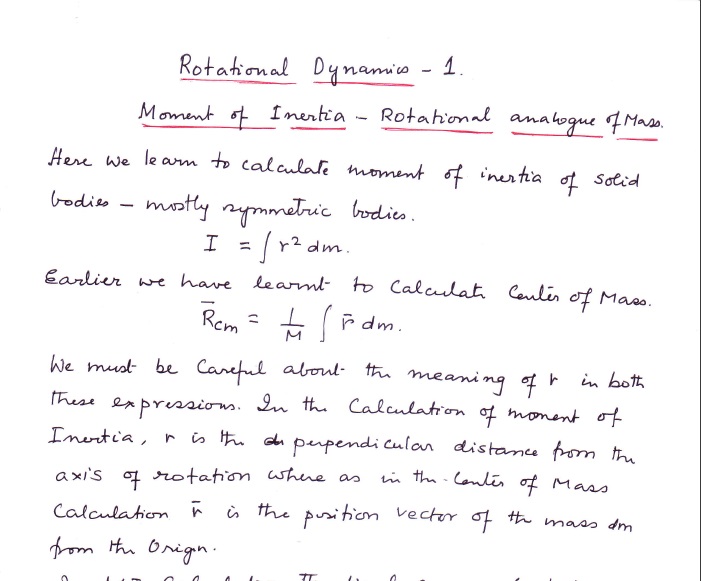 Rotational Dynamics - 1.
Moment of Inertia - Rotational analogue of Mass.
Here we learn to calculate moment of inertia of solid
bodies - mostly symmetric bodies.
I = ∫ r² dm.
Earlier we have learnt to Calculate Center of Mass.
R̄cm = 1/M ∫ r̄ dm.
We must be Careful about the meaning of r in both
these expressions. In the Calculation of moment of
Inertia, r is the perpendicular distance from the
axis of rotation where as in the Center of Mass
Calculation r̄ is the position vector of the mass dm
from the Origin.